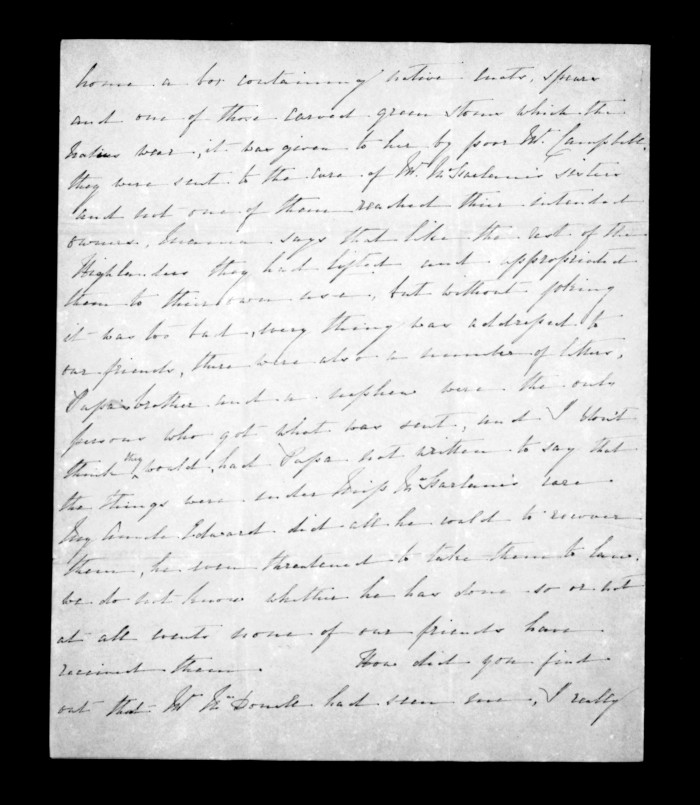 home a box containing native mats, spears
and one of those carved green stones which the
Natives wear, it was given to her by poor Mr. Campbell,
they were sent to the care of Mr. McFarlane's sisters
and not one of them reached their intended
owners, Mamma says that like the rest of the
Highlanders they had lifted and appropriated
them to their own use, but without joking
it was too bad, every thing was addressed to
our friends, there were also a number of letters,
Papa's brother and a nephew were the only
persons who got what was sent, and I don't
think they would, had Papa not written to say that
the things were under Miss McFarlane's care
My Uncle Edward did all he could to recover
them, he even threatened to take them to law.
we do not know whether he has done so or not
at all events none of our friends have
received them. How did you find
out that Mr. McDonell had seen me, I really